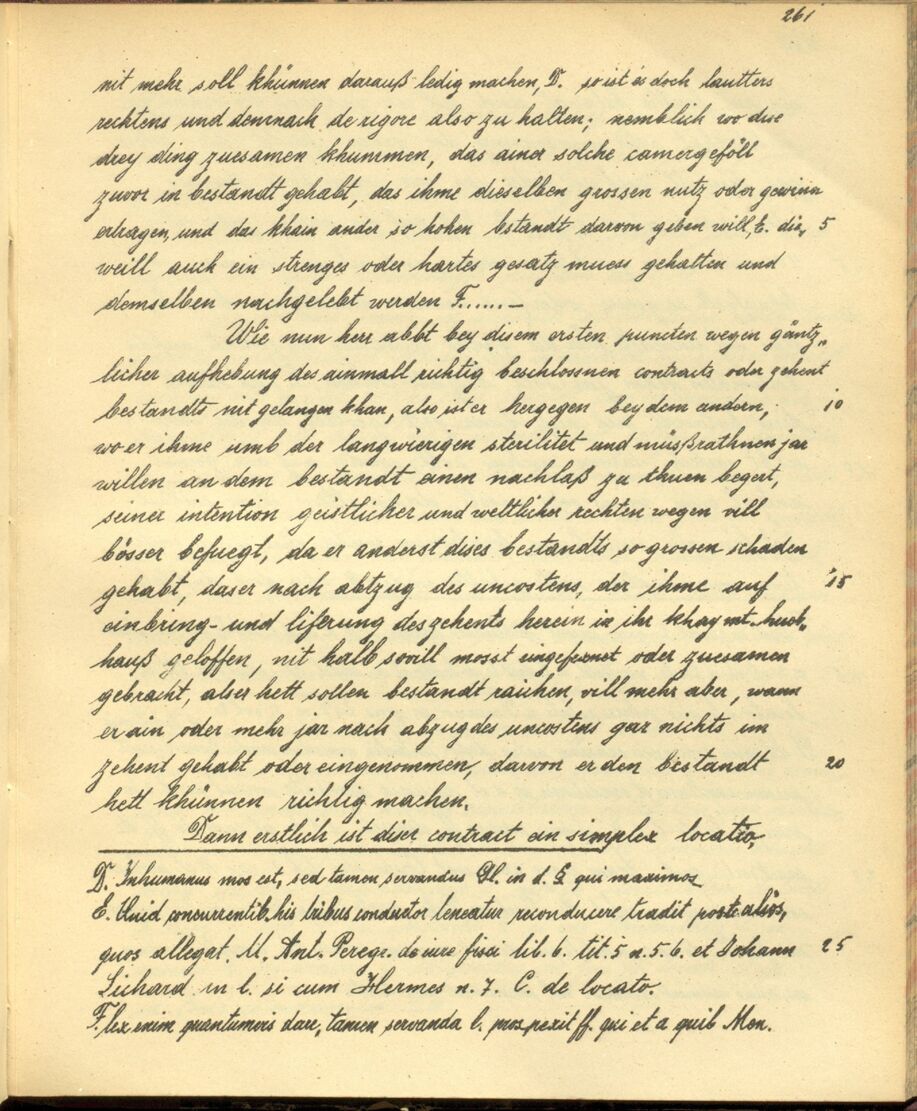 261
nit mehr soll khünnen darauß ledig machen, D. so ist es doch lautters
rechtens und demnach de rigore also zu halten; nemblich wo dise
drey ding zuesamen khummen, das ainer solche camergeföll
zuvor in bestandt gehabt, das ihme dieselben grossen nutz oder gewinn
ertragen, und das khain ander so hohen bstandt darvon geben will, E. die„ 5
weill auch ein strenges oder hartes gesatz muess gehalten und
demselben nachgelebt werden F......—
Wie nun herr abbt bey disem ersten puncten wegen gäntz„
licher aufhebung des ainmall richtig beschlossnen contracts oder zehent
bestandts nit gelangen khan, also ist er hergegen bey dem andern, 10
wo er ihme umb der langwierigen sterilitet und müsßrathnen jar
willen an dem bestandt einen nachlaß zu thuen begert,
seiner intention geistlicher und weltlicher rechten wegen vill
bösser befuegt, da er anderst dises bestandts so grossen schaden
gehabt, das er nach abtzug des uncostens, der ihme auf 15
einbring- und liferung des zehents herein in ihr khay mt.
hauß geloffen, nit halb sovill mosst eingefexnet oder zuesamen
gebracht, als er hett sollen bestandt raichen, vill mehr aber, wann
er ain oder mehr jar nach abzug des uncostens gar nichts im
zehent gehabt oder eingenommen, darvon er den bestandt 20
hett khünnen richtig machen.
Dann erstlich ist diser contract ein simplex locatio,
D. Inhumanus mos est, sed tamen servandus Gl. in d. § qui maximos
E. Quid concurrentib. his tribus conductor teneatur reconducere tradit post alios,
quos allegat. M. Ant. Peregr. de iure fisci lib. 6. tit. 5 n. 5. 6. et Johann 25
Sichard in l. si cum Hermes n. 7. C. de locato.
F. lex enim quantumvis dure, tamen servanda l. prospexit ff. qui et a quib Man.